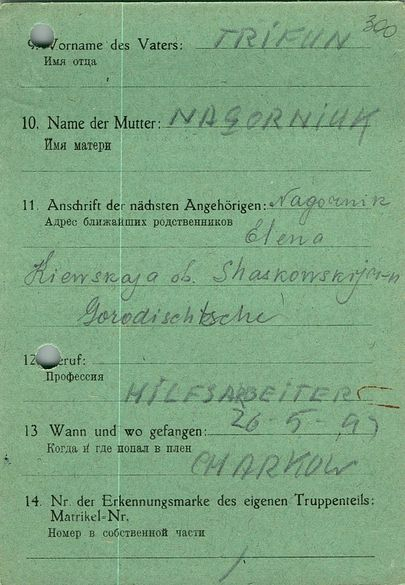 300
9. Vorname des Vaters: TRIFUN
Имя отца
10. Name der Mutter: NAGORNIUK
Имя матери
11. Anschrift der nächsten Angehörigen: Nagornik
Адрес ближайших родственников
Elena
Kiewskaja ob. Shaskowskij r-n
Gorodischtsche
12. Beruf:
Профессия
HILFSARBEITER
13 Wann und wo gefangen: 26-5-42
Когда и где попал в плен
CHARKOW
14. Nr. der Erkennungsmarke des eigenen Truppenteils:
Matrikel-Nr.
Номер в собственной части
/